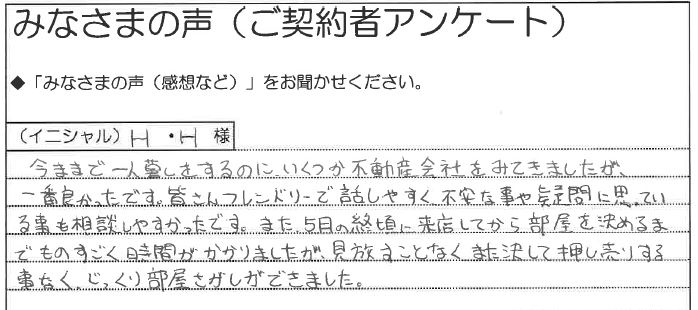 みなさまの声（ご契約者アンケート）
◆「みなさまの声（感想など）」をお聞かせください。
（イニシャル）H・H 様
今まで一人暮しをするのに、いくつか不動産会社をみてきましたが、
一番良かったです。皆さんフレンドリーで話しやすく、不安な事や疑問に思ってい
る事も相談しやすかったです。また、5月の終頃に来店してから部屋を決めるま
でものすごく時間がかかりましたが、見放すことなくまた決して押し売りする
事なく、じっくり部屋さがしができました。